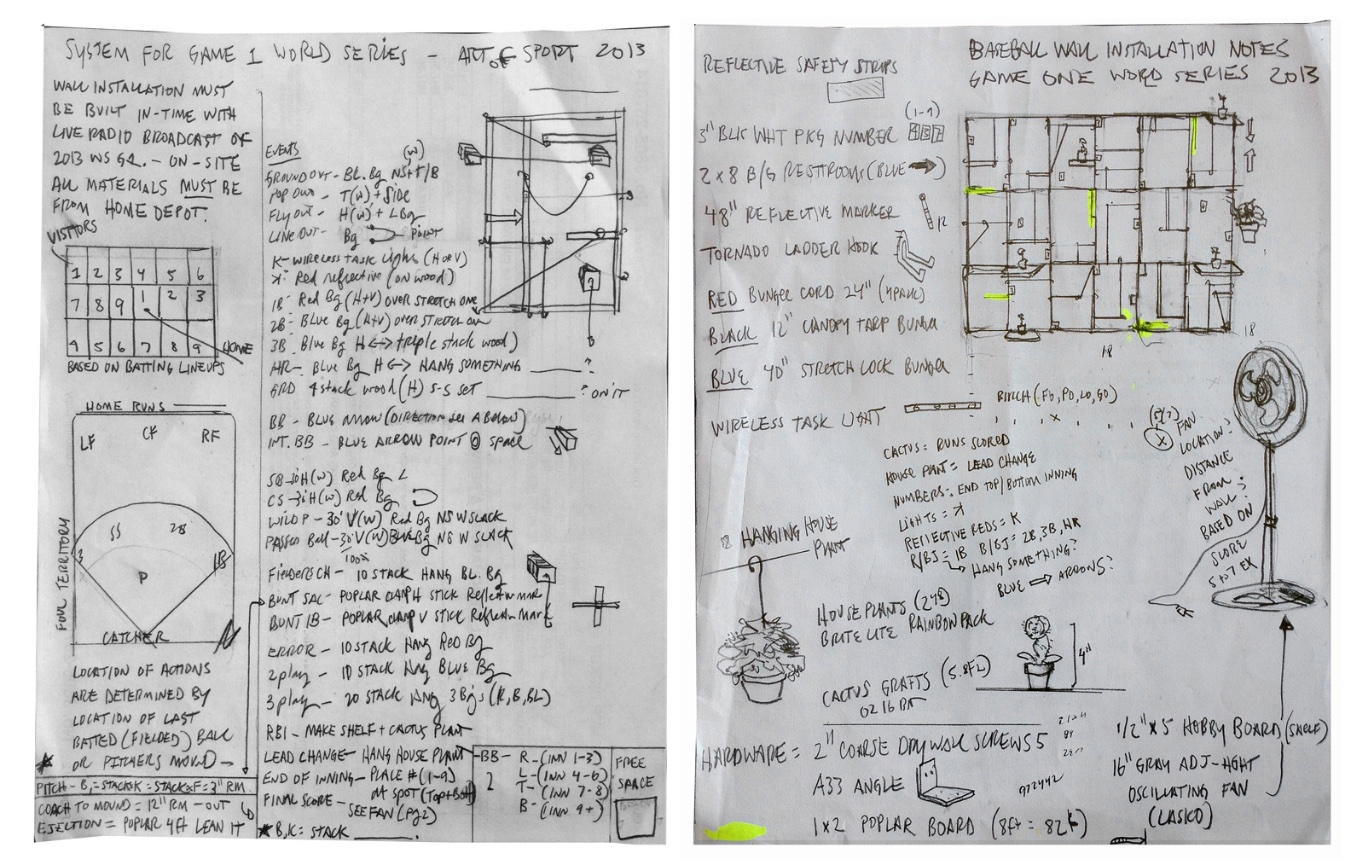 SYSTEM FOR GAME 1 WORLD SERIES - ART OF SPORT 2013
WALL INSTALLATION MUST
BE BUILT IN-TIME WITH
LIVE RADIO BROADCAST OF
2013 WS G1. - ON-SITE
ALL MATERIALS MUST BE
FROM HOME DEPOT.
VISITORS
1 2 3 4 5 6
7 8 9 1 2 3
4 5 6 7 8 9
HOME
BASED ON BATTING LINEUPS
HOME RUNS
LF CF RF
SS 2B
3 1B
P
CATCHER
FOUL TERRITORY
LOCATION OF ACTIONS
ARE DETERMINED BY
LOCATION OF LAST
BATTED (FIELDED) BALL
OR PITCHERS MOUND -
PITCH - B,=STACK K = STACK F = 3" RM
COACH TO MOUND = 12" RM - OUT
EJECTION = POPLAR 4FT LEAN IT
EVENTS
(W)
GROUND OUT - BL. Bg NS+T/B
POP OUT - T(W) + SIDE
FLY OUT - H(W) + LBg
LINE OUT - Bg POINT
K - WIRELESS TASK Lights (H or V)
Red reflective (on wood)
1B - Red Bg (H+V) OVER STRETCH ONE
2B - BLUE Bg (H+V) OVER STRETCH ON
3B - Blue Bg H <-> triple stack wood)
HR - BLUE Bg H <-> HANG SOMETHING ______ ?
GRD 4 stack wood (H) S-S SET ______ ? ON IT
BB - BLUE ARROW (DIRECTION see A Below)
INT. BB - BLUE ARROW POINT @ SPACE
SB → H(W) Red Bg L
CS → H(W) Red Bg
WILD P - 30" V(W) Red Bg NS W SLACK
PASSED Ball - 30" V(W) Blue Bg NS W SLACK
FIELDERS CH - 10 STACK HANG BL. Bg
BUNT SAC - POPLAR CLAMP H STICK Reflectiv MARK
BUNT 1B - POPLAR CLAMP V STICK Reflectiv MARK
ERROR - 10 STACK HANG RED Bg
2 play - 10 STACK HANG BLUE Bg
3 play - 20 STACK HANG 3 Bg's (R, B, BL)
RBI - MAKE SHELF + CACTUS PLANT
LEAD CHANGE - HANG HOUSE PLANT
END OF INNING - PLACE # (1-9)
AT SPOT (Top+Bot)
FINAL SCORE - SEE FAN (Pg 2)
* B,K = STACK ______.
BB - R - (INN 1-3)
2 L - (INN 4-6)
T - (INN 7-8)
B - (INN 9+)
FREE
SPACE
BASEBALL WALL INSTALLATION NOTES
GAME ONE WORD SERIES 2013
REFLECTIVE SAFETY STRIPS
(1-9)
3" BLK WHT PKG NUMBER
2 x 8 B/G RESTROOM (BLUE ➡)
48" REFLECTIVE MARKER
12
TORNADO LADDER HOOK
RED BUNGEE CORD 24" (4PACK)
BLACK 12" CANOPY TARP BUNGEE
BLUE 40" STRETCH LOCK BUNGEE
WIRELESS TASK LIGHT
18
18
PITCH (FO, PO, LO, GO)
CACTUS = RUNS SCORED
HOUSE PLANT = LEAD CHANGE
NUMBERS = END TOP/BOTTOM INNING
LIGHTS =
REFLECTIVE REDS = K
R/BJS = 1B B/BJ = 2B, 3B, HR
HANG SOMETHING?
BLUE ⇨ ARROWS?
X
FAN
LOCATION?
DISTANCE
FROM
WALL?
BASED ON
SCORE
5 to 7 EX
HANGING HOUSE
PLANT
HOUSE PLANTS (248)
BRITE LITE RAINBOW PACK
4"
CACTUS GRAFTS (5.8FL)
02 16 BA
HARDWARE = 2" COARSE DRYWALL SCREWS 5
A33 ANGLE
1x2 POPLAR BOARD (8ft = 82¢)
1/2" x 5 HOBBY BOARD (SHELF)
16" GRAY ADJ-HGHT
OSCILLATING FAN
(LASKO)